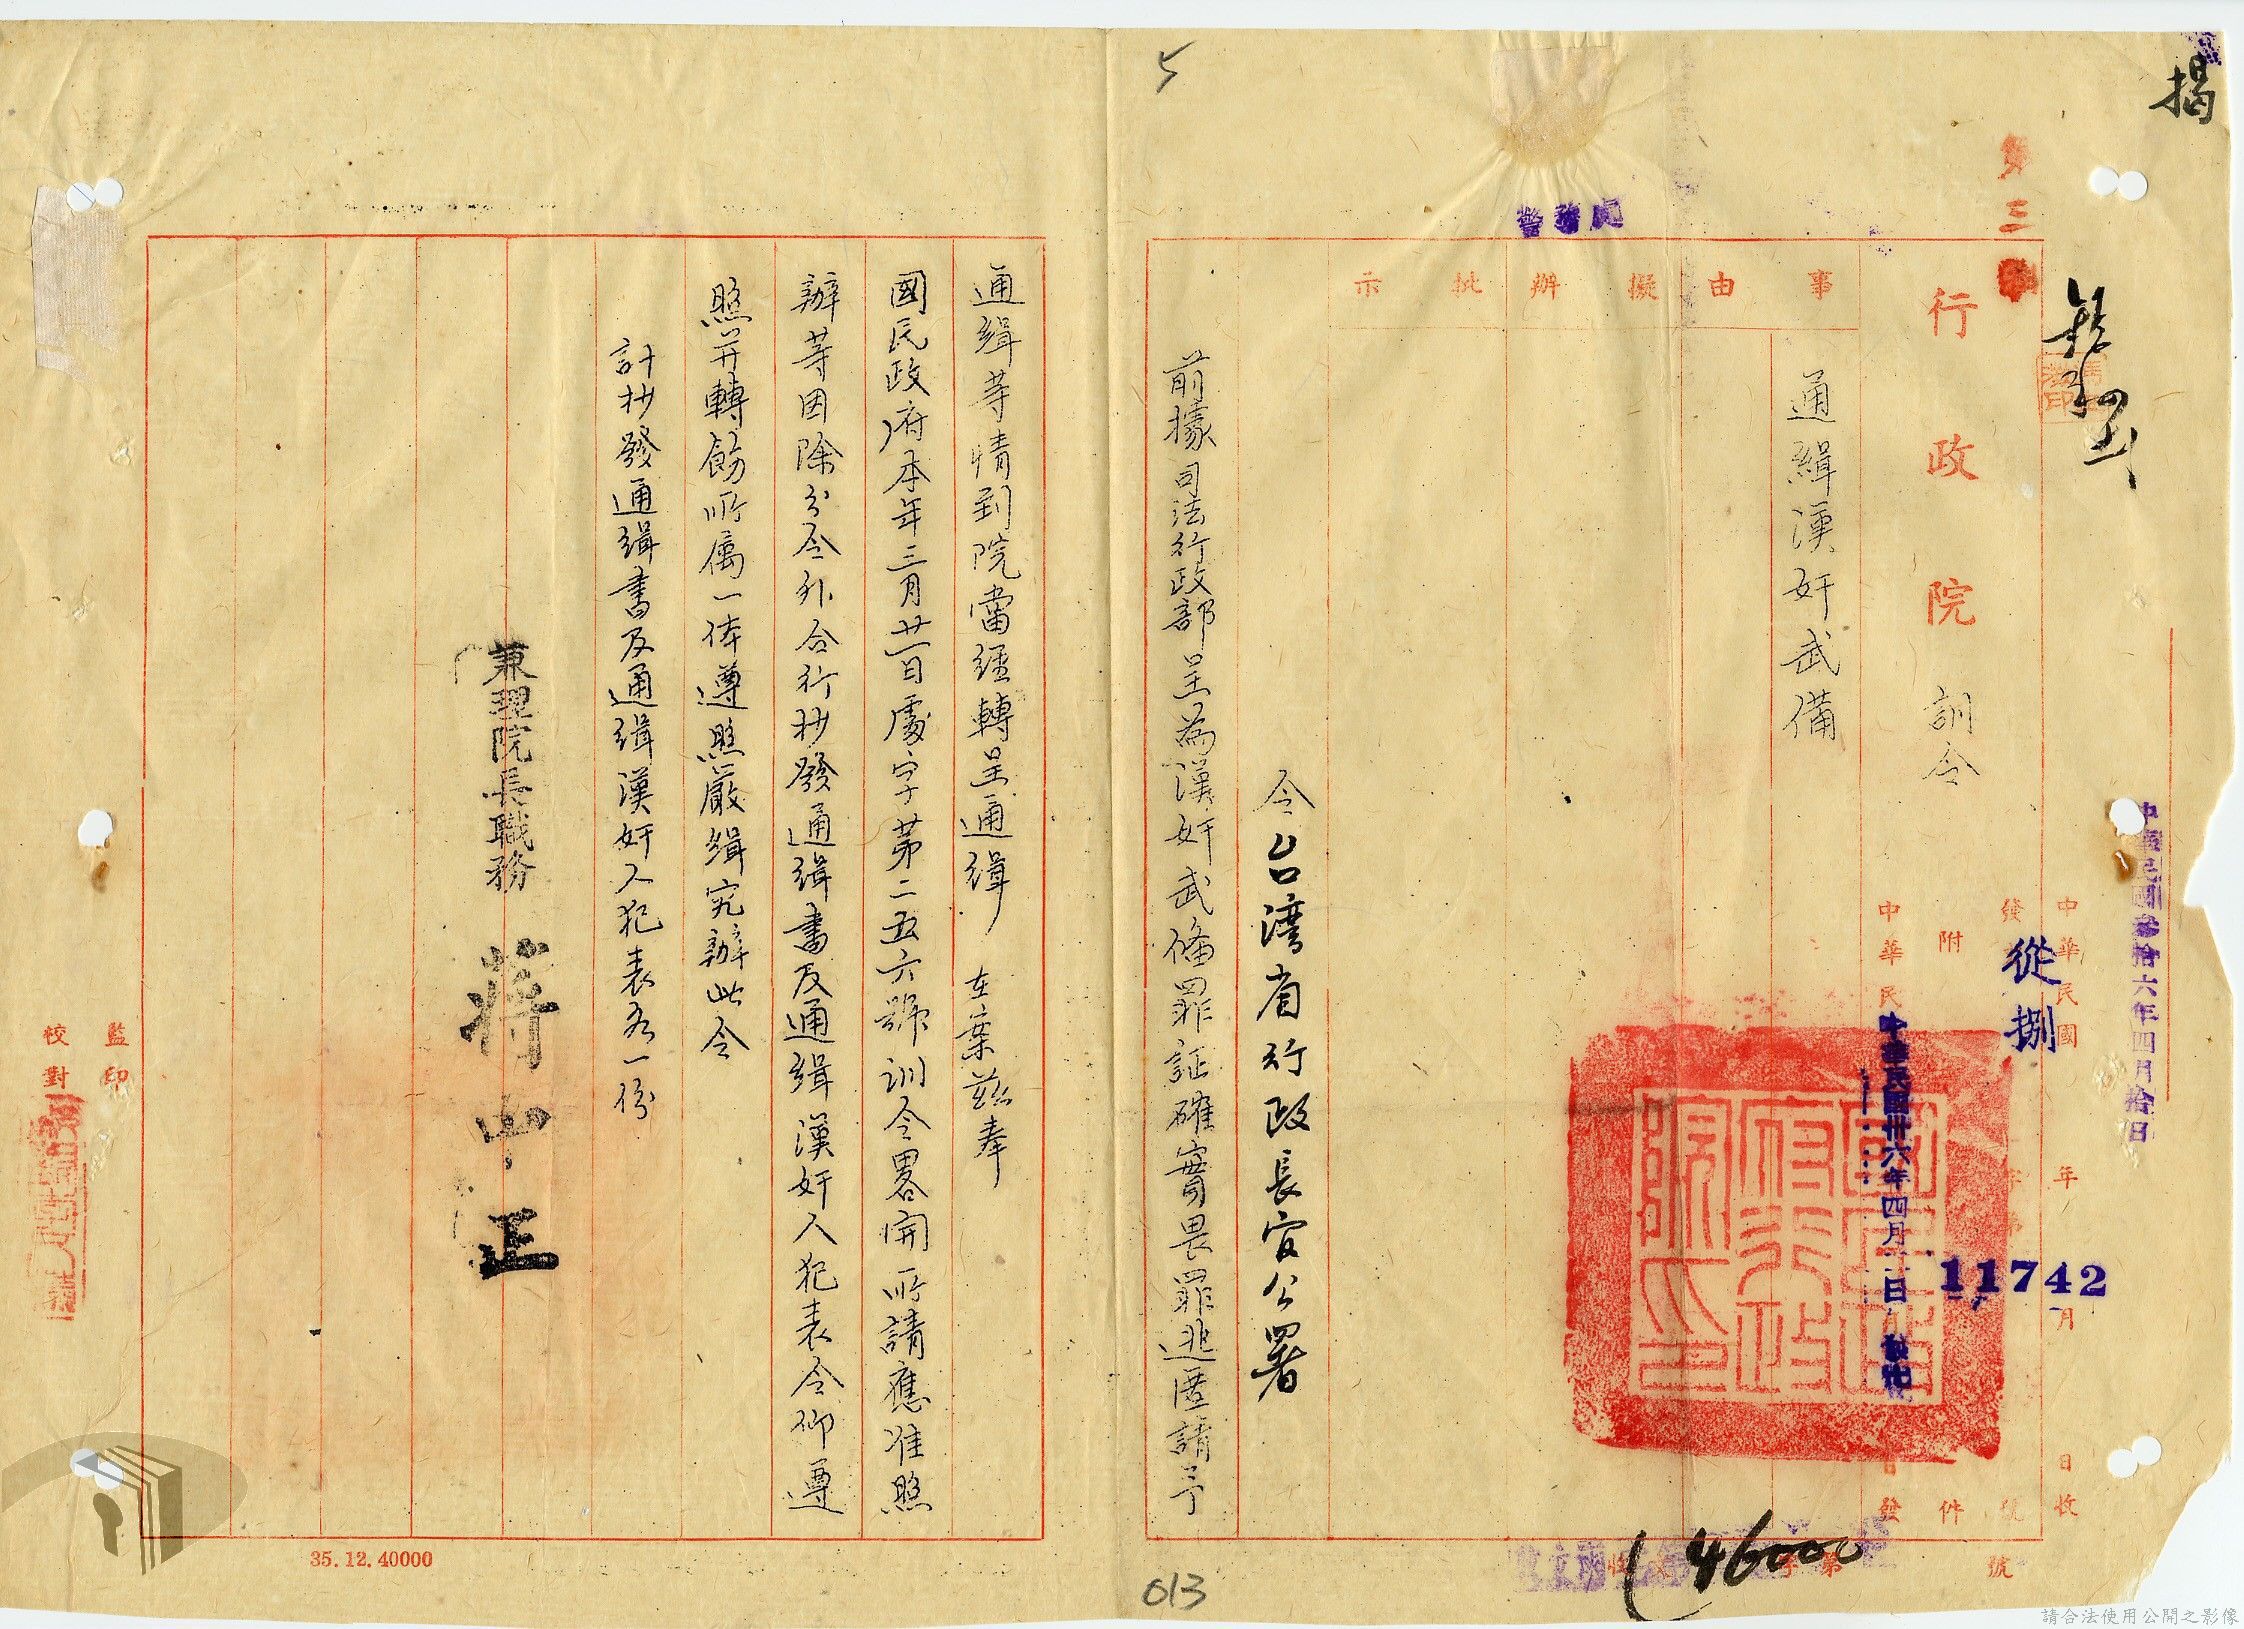 揭
行政院訓令
從捌
11742
中華民國參拾六年四月拾日
中華民國 年 月 日收
附 件
中華民國卅六年四月 日發
事由 擬辦 批示
警務處
通緝漢奸武備
令台灣省行政長官公署
前據司法行政部呈為漢奸武偹罪証確實畏罪逃匿請予
通緝等情到院當經轉呈通緝 在案茲奉
國民政府本年三月廿一日處字第二五六號訓令畧開所請應准照
辦等因除分令外合行抄發通緝書及通緝漢奸人犯表令仰遵
照并轉飭所屬一体遵照嚴緝究辦此令
計抄發通緝書及通緝漢奸人犯表各一份
兼理院長職務 蔣中正
監印
校對
35.12.40000
5
013
46000
號
請合法使用公開之影像